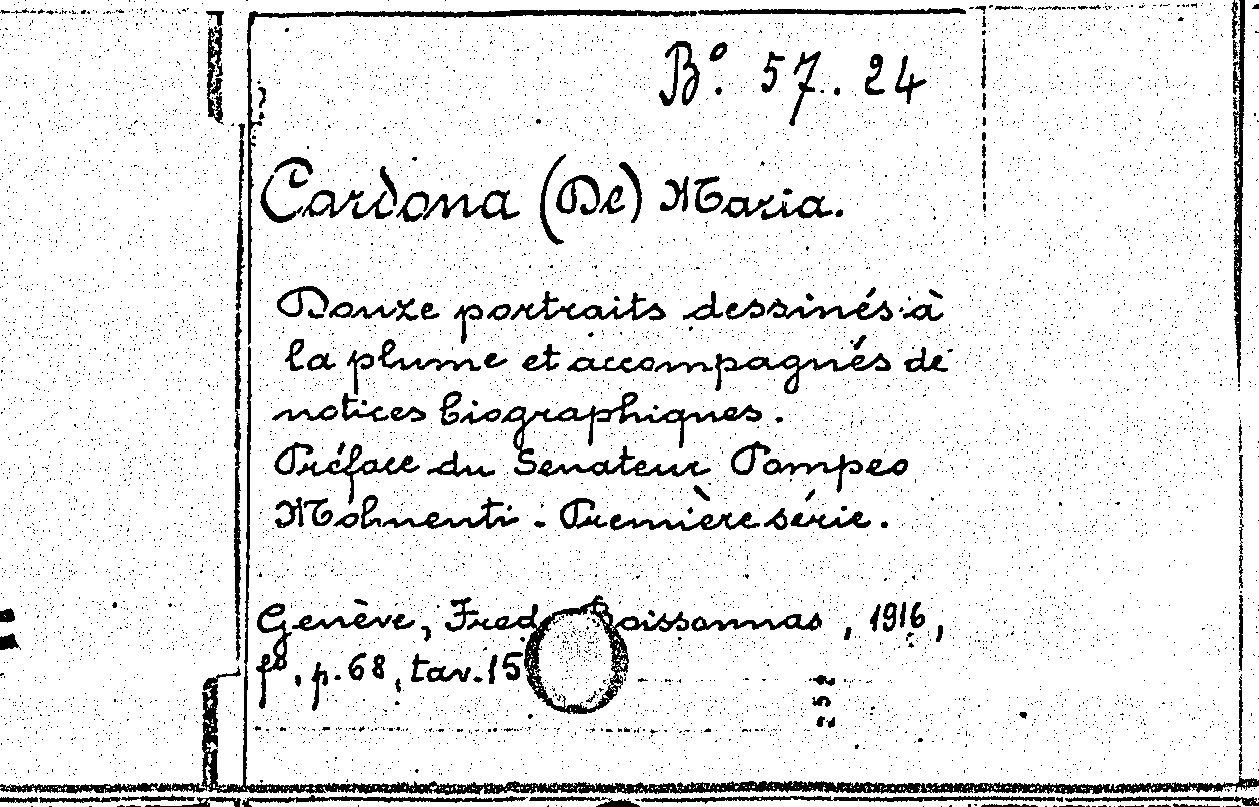 B°. 57. 24
Cardona (De) Maria.
Douze portraits dessinés à
la plume et accompagnés de
notices biographiques.
Préface du Senateur Pompeo
Molmenti. Première série.
Genève, Fred Boissonnas, 1916,
f°. p. 68, tav. 15
252